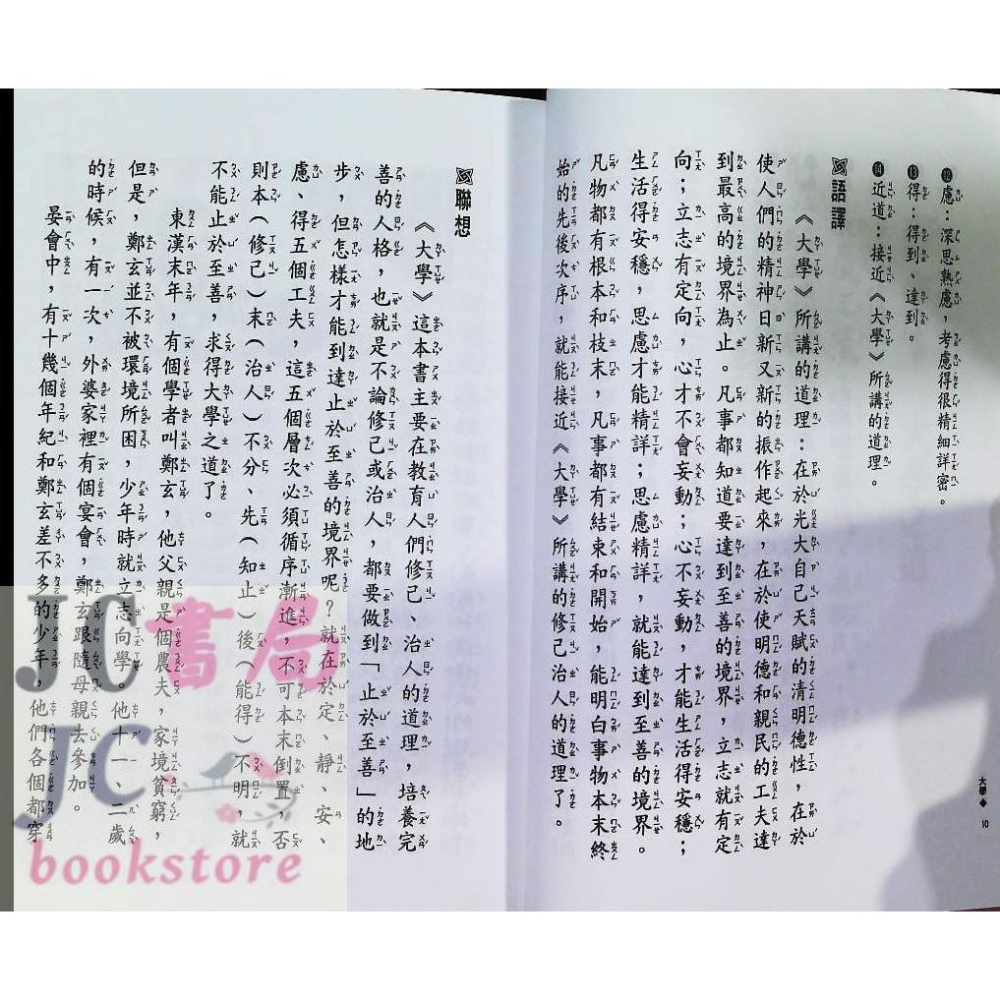 ⓬慮：深思熟慮，考慮得很精細詳密。
⓭得：得到、達到。
⓮近道：接近《大學》所講的道理。
語譯
《大學》所講的道理：在於光大自己天賦的清明德性，在於
使人們的精神日新又新的振作起來，在於使明德和親民的工夫達
到最高的境界為止。凡事都知道要達到至善的境界，立志就有定
向；立志有定向，心才不會妄動；心不妄動，才能生活得安穩；
生活得安穩，思慮才能精詳；思慮精詳，就能達到至善的境界。
凡物都有根本和枝末，凡事都有結束和開始，能明白事物本末終
始的先後次序，就能接近《大學》所講的修己治人的道理了。
大學◆ 10
聯想
《大學》這本書主要在教育人們修己、治人的道理，培養完
善的人格，也就是不論修己或治人，都要做到「止於至善」的地
步，但怎樣才能到達止於至善的境界呢？就在於定、靜、安、
慮、得五個工夫，這五個層次必須循序漸進，不可本末倒置，否
則本（修己）末（治人）不分、先（知止）後（能得）不明，就
不能止於至善，求得大學之道了。
東漢末年，有個學者叫鄭玄，他父親是個農夫，家境貧窮，
但是，鄭玄並不被環境所困，少年時就立志向學。他十一、二歲
的時候，有一次，外婆家裡有個宴會，鄭玄跟隨母親去參加。
宴會中，有十幾個年紀和鄭玄差不多的少年，他們各個都穿
JC書局
JC
bookstore